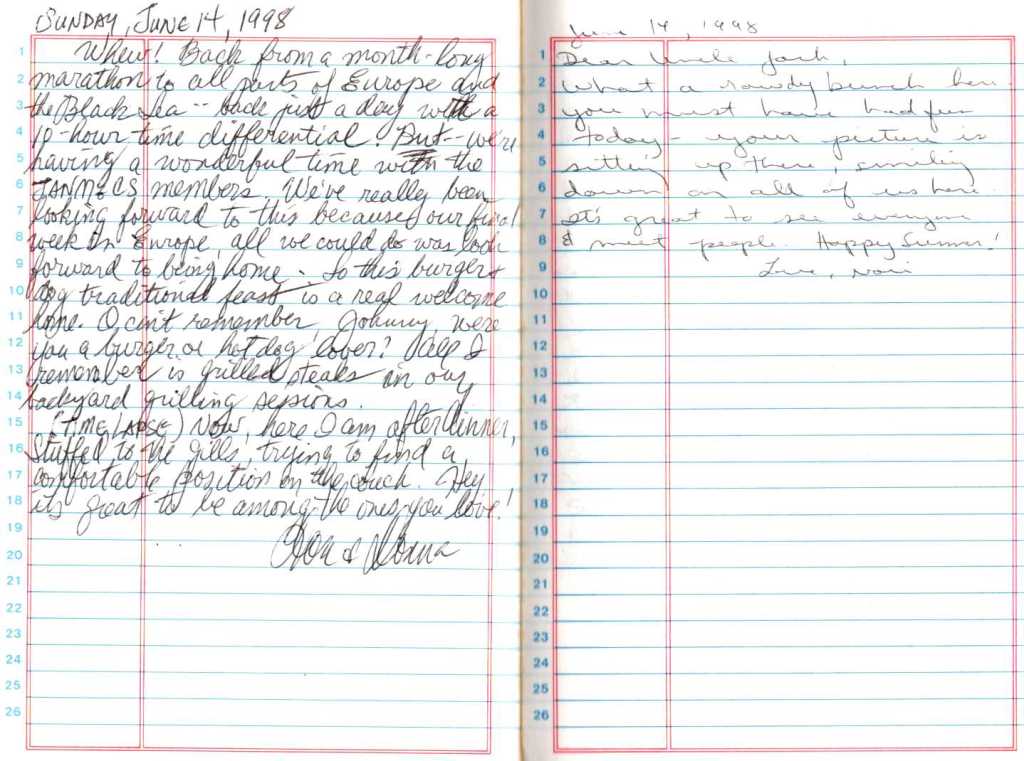 SUNDAY, JUNE 14, 1998
1 Whew! Back from a month-long
2 marathon to all parts of Europe and
3 the Black Sea -- back just a day with a
4 10-hour time differential. But -- we're
5 having a wonderful time with the
6 members. We've really been
7 looking forward to this because our final
8 week in Europe, all we could do was look
9 forward to being home. So this burger &
10 dog traditional feast is a real welcome
11 home. I can't remember, Johnny, were
12 you a burger or hot dog lover? All I
13 remember is grilled steaks in our
14 backyard grilling sessions.
15 (TIME LAPSE) Now, here I am after dinner,
16 stuffed to the gills, trying to find a
17 comfortable position on the couch. Hey
18 it's great to be among the ones you love!
19
20 & Donna
21
22
23
24
25
26
June 14, 1998
1 Dear Uncle Jack,
2 What a rowdy bunch here.
3 you must have had fun
4 today - your picture is
5 sitting up there, smiling
6 down on all of us here.
7 It's great to see everyone
8 & meet people. Happy Summer!
9 Love, Nori
10
11
12
13
14
15
16
17
18
19
20
21
22
23
24
25
26